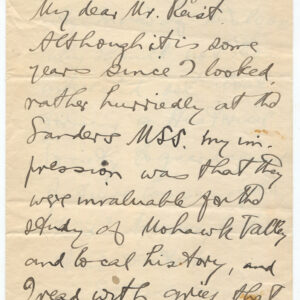 My dear Mr. Reist
Although it is some
years since I looked,
rather hurriedly at the
Sanders MSS. my im-
pression was that they
were invaluable for the
study of Mohawk Valley
and local history, and
I read with grief that